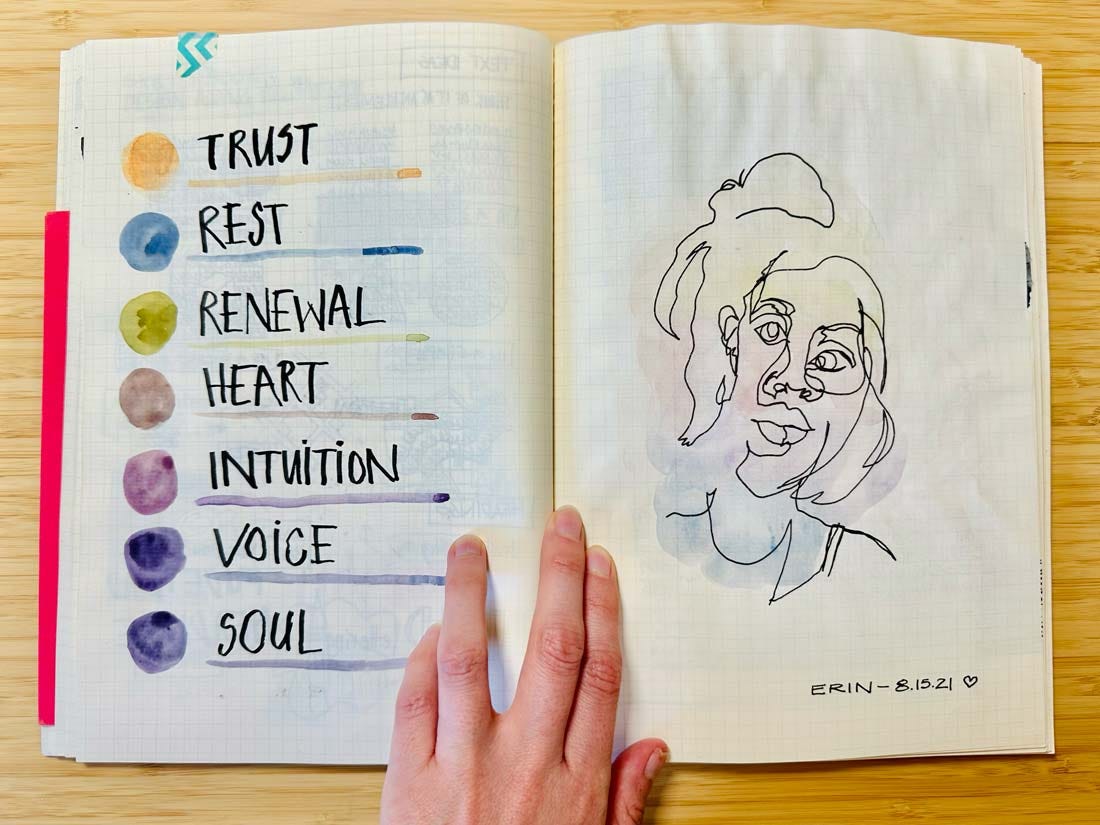 TRUST
REST
RENEWAL
HEART
INTUITION
VOICE
SOUL
ERIN – 8.15.21 ♡